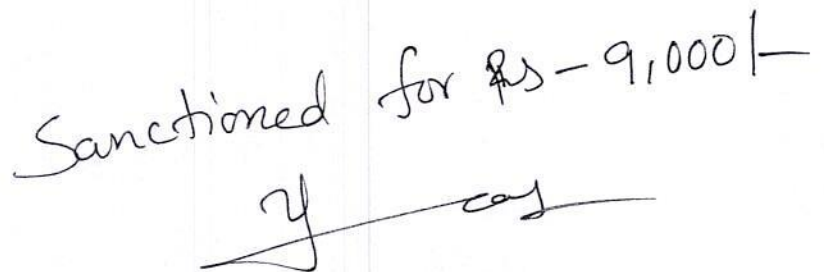 Sanctioned for Rs - 9,000/-